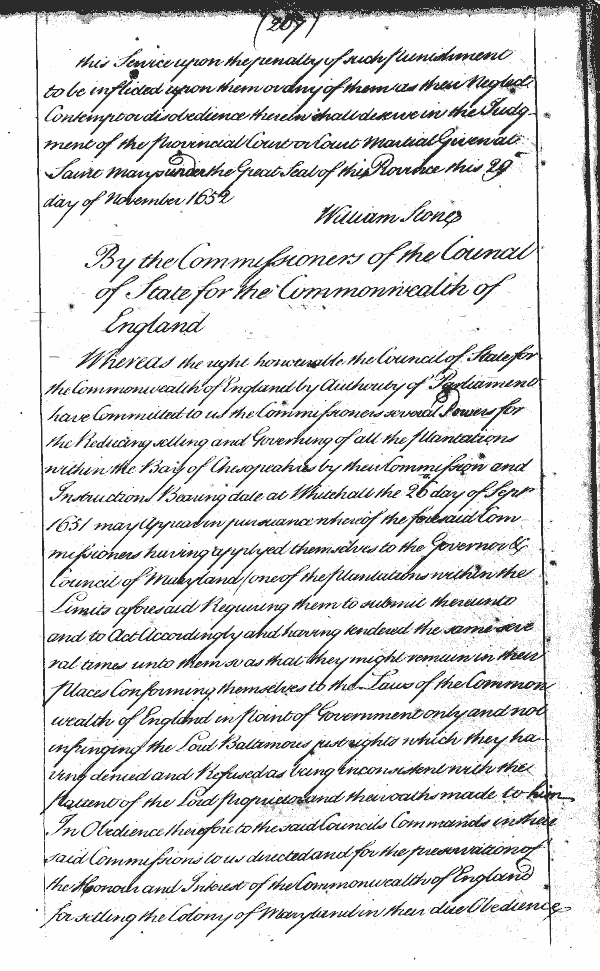 (267)
this Service upon the penalty of such punishment
to be inflicted upon them or any of them as their Neglect
Contempt or disobedience therein shall deserve in the Judg-
ment of the Provincial Court or Court Martial Given at
Saint Marys under the Great Seal of this Province this 29th
day of November 1652
William Stone
By the Commissioners of the Council
of State for the Commonwealth of
England
Whereas the right honourable the Council of State for
the Commonwealth of England by Authority of Parliament
have Committed to us the Commissioners several Powers for
the Reducing setling and Governing of all the plantations
within the Bay of Chesopeahes by their Commission and
Instructions Bearing date at Whitehall the 26 day of Sept
1651 may Appear in pursuance whereof the foresaid Com
missioners having applyed themselves to the Governor &
Council of Maryland (one of the plantations within the
Limits aforesaid Requiring them to submit thereunto
and to Act Accordingly and having tendered the same seve
ral times unto them so as that they might remain in their
places Conforming themselves to the Laws of the Common
wealth of England in point of Government only and not
infringing the Lord Baltamores just rights which they ha-
ving denied and Refused as being inconsistent with the
pattent of the Lord proprietor and their oaths made to him
In Obedience therefore to the said Councils Commands in their
said Commissions to us directed and for the preservation of
the Honour and Interest of the Commonwealth of England
for setling the Colony of Maryland in their due Obedience